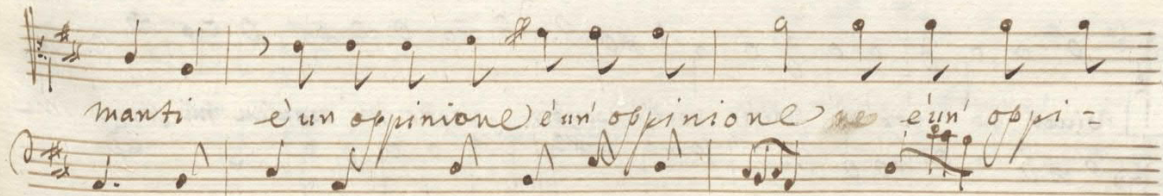 manti è un oppinione è un' oppinione ne è un' oppi=